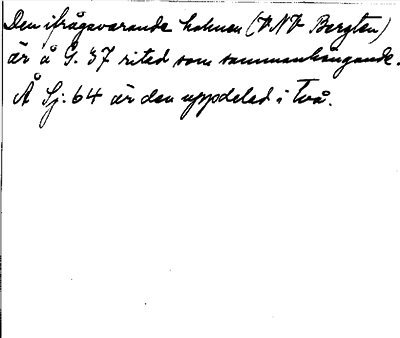 Den ifrågavarande holmen (V N V Bergten)
är å G. 37 ritad som sammanhängande.
Å Sj. 64 är den uppdelad i två.